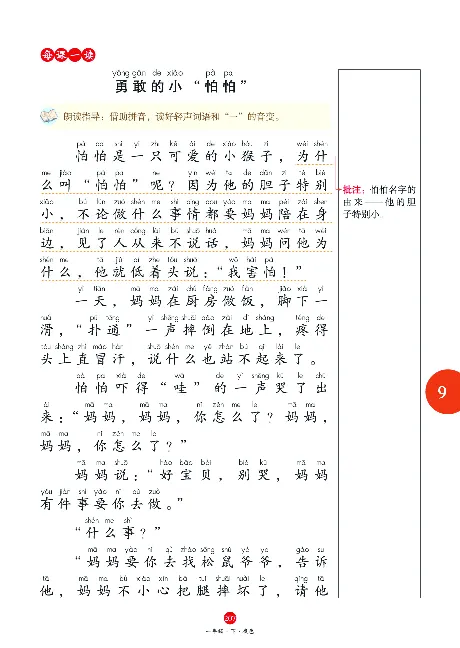 每课一读
yǒng gǎn de xiǎo pà pa
勇敢的小“怕怕”
朗读指导：借助拼音，读好轻声词语和“一”的音变。
pà pa shì yì zhī kě ài de xiǎo hóu zi wèi shén
怕怕是一只可爱的小猴子，为什
me jiào pà pa ne yīn wèi tā de dǎn zi tè bié
么叫“怕怕”呢？因为他的胆子特别
xiǎo bú lùn zuò shén me shì qing dōu yào mā ma péi zài shēn
小，不论做什么事情都要妈妈陪在身
biān jiàn le rén cóng lái bù shuō huà mā ma wèn tā wèi
边，见了人从来不说话，妈妈问他为
shén me tā jiù dī zhe tóu shuō wǒ hài pà
什么，他就低着头说：“我害怕！”
yì tiān mā ma zài chú fáng zuò fàn jiǎo xià yì
一天，妈妈在厨房做饭，脚下一
huá pū tōng yì shēng shuāi dǎo zài dì shàng téng de
滑，“扑通”一声摔倒在地上，疼得
tóu shàng zhí mào hàn shuō shén me yě zhàn bù qǐ lái le
头上直冒汗，说什么也站不起来了。
pà pa xià de wā de yì shēng kū le chū
怕怕吓得“哇”的一声哭了出
lái mā ma mā ma nǐ zěn me le mā ma
来：“妈妈，妈妈，你怎么了？妈妈，
mā ma nǐ zěn me le
妈妈，你怎么了？”
mā ma shuō hǎo bǎo bèi bié kū mā ma
妈妈说：“好宝贝，别哭，妈妈
yǒu jiàn shì yào nǐ qù zuò
有件事要你去做。”
shén me shì
“什么事？”
mā ma yào nǐ qù zhǎo sōng shǔ yé ye gào su
“妈妈要你去找松鼠爷爷，告诉
tā mā ma bù xiǎo xīn bǎ tuǐ shuāi huài le qǐng tā
他，妈妈不小心把腿摔坏了，请他
批注：怕怕名字的
由来——他的胆
子特别小。
9
207
一年级·下·橙色